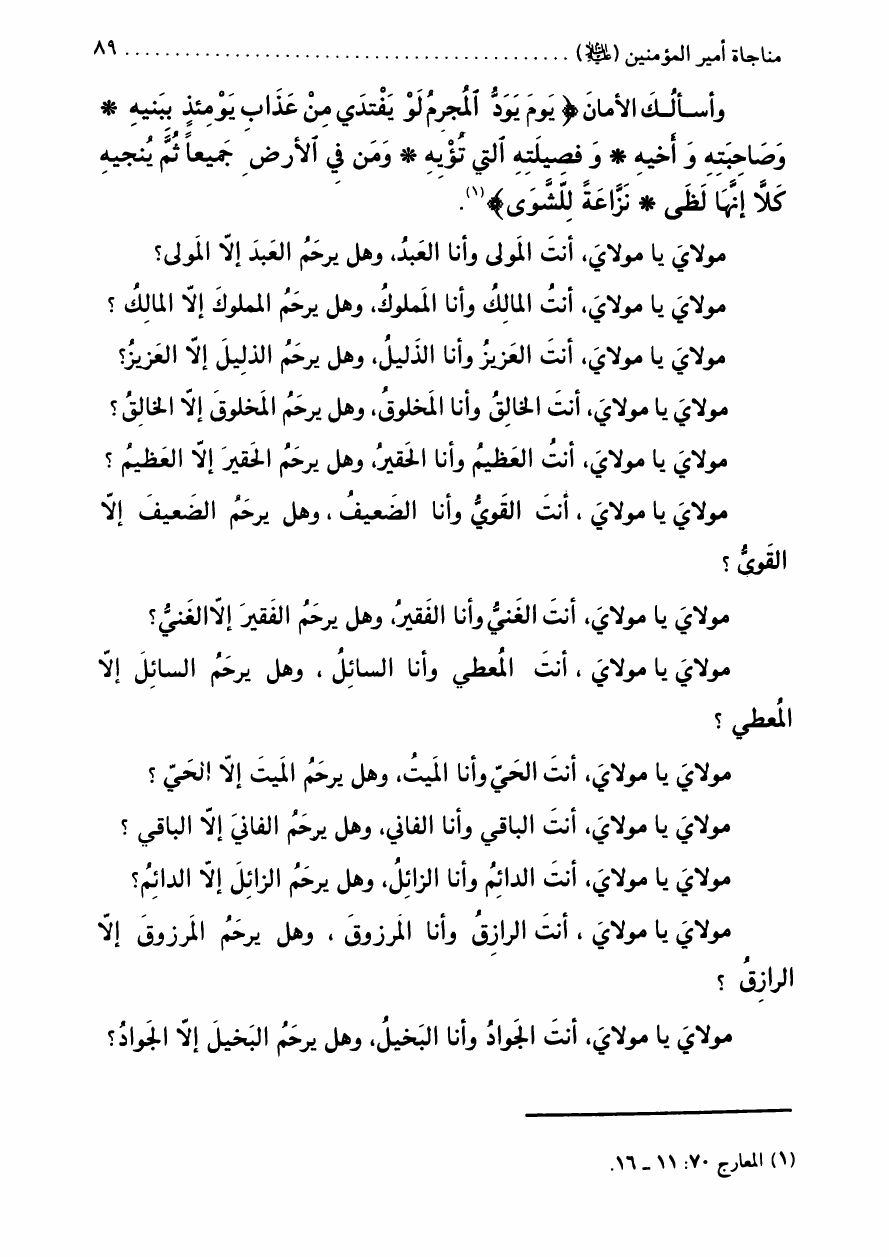 مناجاة أمير المؤمنين (عليه السلام) ............................................. ٨٩
وأسألُكَ الأمانَ ﴿ يَومَ يَوَدُّ ٱلْمُجرِمُ لَوْ يَفْتَدَي مِنْ عَذَابِ يَوْمِئذٍ بِبَنيهِ *
وَصَاحِبَتِهِ وَ أَخيهِ * وَ فصيلَتِهِ ٱلتي تُؤْيهِ * وَمَن في ٱلأرضِ جَميعاً ثُمَّ يُنجيهِ
كَلَّا إنَّهَا لَظَى * نَزَّاعَةً لِلشَّوَى﴾(١).
مولايَ يا مولايَ، أنتَ المَولى وأنا العَبدُ، وهل يرحَمُ العَبدَ إلّا المَولى؟
مولايَ يا مولايَ، أنتُ المالِكُ وأنا المَملوكُ، وهل يرحَمُ المملوكَ إلّا المالِكُ ؟
مولايَ يا مولايَ، أنتَ العَزيزُ وأنا الذَليلُ، وهل يرحَمُ الذليلَ إلّا العَزيزُ؟
مولايَ يا مولايَ، أنتَ الخالِقُ وأنا المَخلوقُ، وهل يرحَمُ المَخلوقَ إلّا الخالِقُ؟
مولايَ يا مولايَ، أنتُ العَظيمُ وأنا الحَقيرُ، وهل يرحَمُ الحَقيرَ إلّا العَظيمُ ؟
مولايَ يا مولايَ ، أنتَ القَويُّ وأنا الضَعيفُ ، وهل يرحَمُ الضَعيفَ إلّا
القَويُّ ؟
مولايَ يا مولايَ، أنتَ الغَنيُّ وأنا الفَقيرُ، وهل يرحَمُ الفَقيرَ إلّا الغَنيُّ؟
مولايَ يا مولايَ ، أنتَ المُعطي وأنا السائِلُ ، وهل يرحَمُ السائِلَ إلّا
المُعطي ؟
مولايَ يا مولايَ، أنتَ الحَيّ وأنا المَيتُ، وهل يرحَمُ المَيتَ إلّا الحَيّ ؟
مولايَ يا مولايَ، أنتَ الباقي وأنا الفاني، وهل يرحَمُ الفانيَ إلّا الباقي ؟
مولايَ يا مولايَ، أنتَ الدائمُ وأنا الزائلُ، وهل يرحَمُ الزائلَ إلّا الدائمُ؟
مولايَ يا مولايَ ، أنتَ الرازِقُ وأنا المَرزوقَ ، وهل يرحَمُ المَرزوقَ إلّا
الرازِقُ ؟
مولايَ يا مولايَ، أنتَ الجَوادُ وأنا البَخيلُ، وهل يرحَمُ البَخيلَ إلّا الجَوادُ؟
(١) المعارج ٧٠: ١١ ـ ١٦.